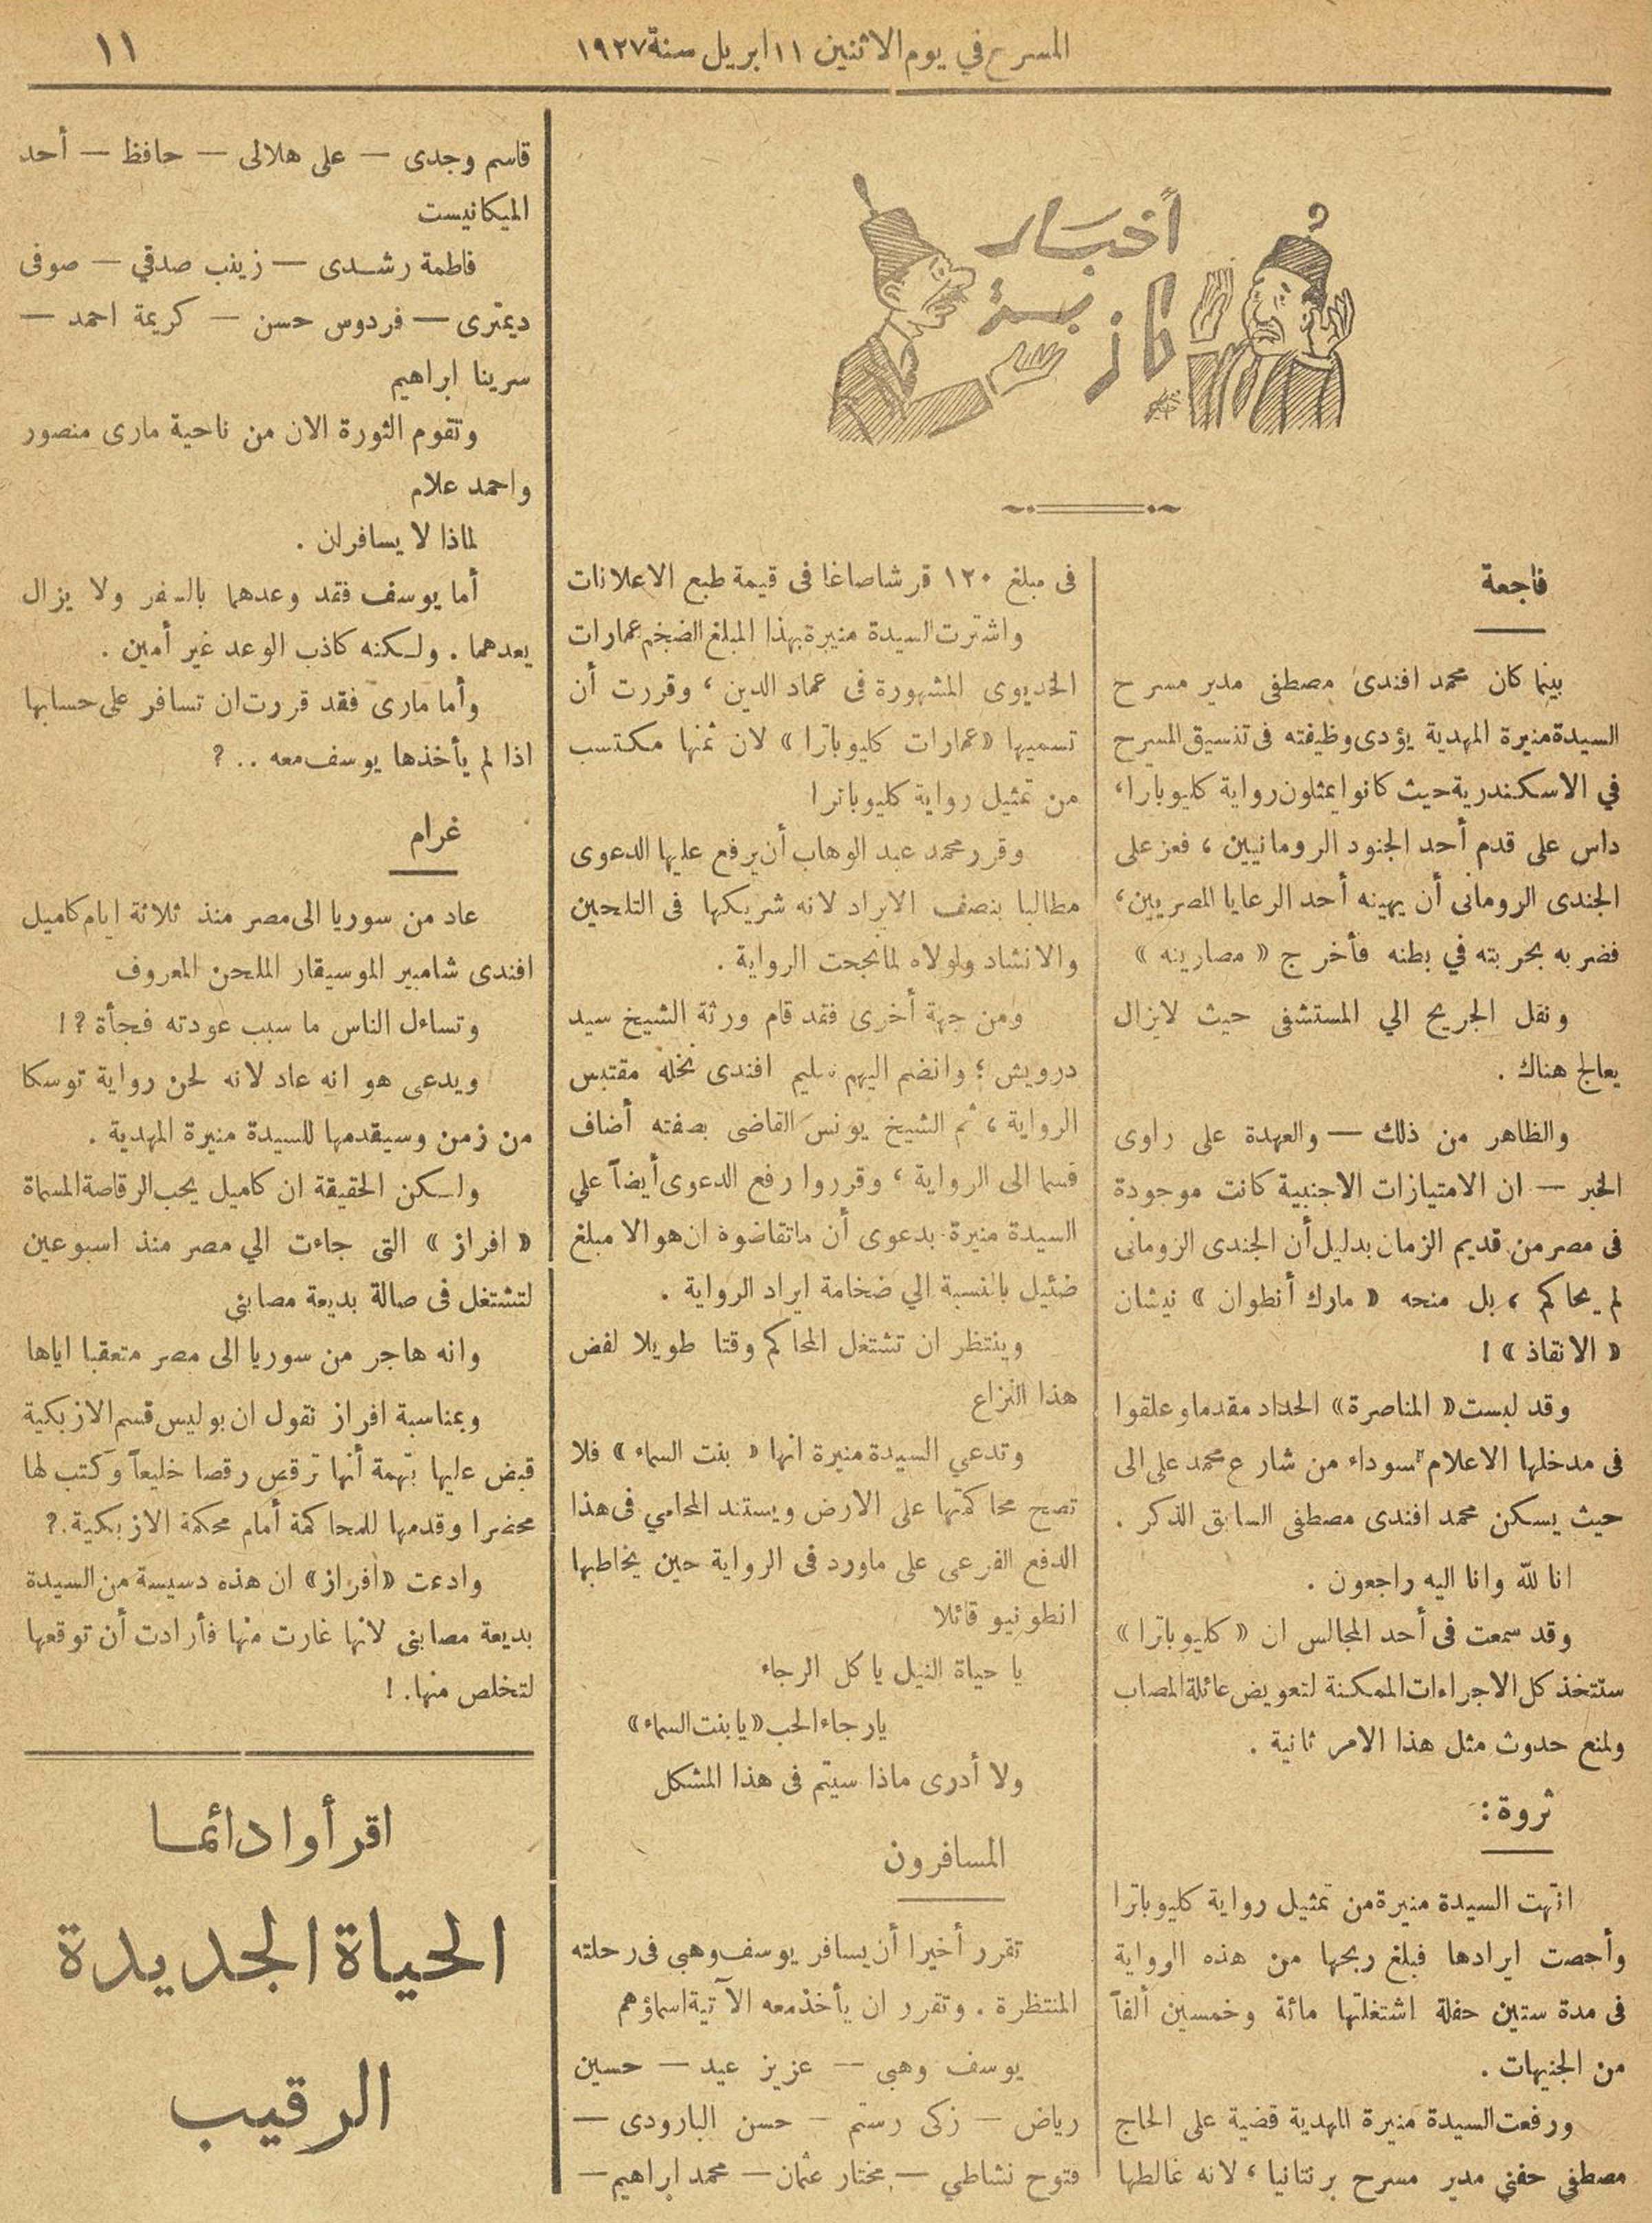 المسرح في يوم الاثنين ١١ ابريل سنة ١٩٢٧
١١
أخبار
كاذبة
فاجعة
بينما كان محمد افندى مصطفى مدير مسرح
السيدة منيرة المهدية يؤدى وظيفته فى تنسيق المسرح
في الاسكندرية حيث كانوا يمثلون رواية كليوبارا،
داس على قدم أحد الجنود الرومانيين ، فعز على
الجندى الرومانى أن يهينه أحد الرعايا المصريين،
فضربه بحربته في بطنه فأخرج « مصارينه »
ونقل الجريح الي المستشفى حيث لايزال
يعالج هناك .
والظاهر من ذلك — والعهدة على راوى
الخبر — ان الامتيازات الاجنبية كانت موجودة
فى مصر من قديم الزمان بدليل أن الجندى الرومانى
لم يحاكم ، بل منحه « مارك أنطوان » نيشان
« الانقاذ » !
وقد لبست « المناصرة » الحداد مقدما وعلقوا
فى مدخلها الاعلام السوداء من شارع محمد على الى
حيث يسكن محمد افندى مصطفى السابق الذكر .
انا لله وانا اليه راجعون .
وقد سمعت فى أحد المجالس ان « كليوباترا »
ستتخذ كل الاجراءات الممكنة لتعويض عائلة المصاب
ولمنع حدوث مثل هذا الامر ثانية .
ثروة :
انتهت السيدة منيرة من تمثيل رواية كليوباترا
وأحصت ايرادها فبلغ ربحها من هذه الرواية
فى مدة ستين حفلة اشتغلتها مائة وخمسين ألفاً
من الجنيهات .
ورفعت السيدة منيرة المهدية قضية على الحاج
مصطفي حفني مدير مسرح برنتانيا ، لانه غالطها
فى مبلغ ١٢٠ قرشا صاغا فى قيمة طبع الاعلانات
واشترت السيدة منيرة بهذا المبلغ الضخم عمارات
الخديوى المشهورة فى عماد الدين ، وقررت أن
تسميها « عمارات كليوباترا » لان ثمنها مكتسب
من تمثيل رواية كليوباترا
وقرر محمد عبد الوهاب أن يرفع عليها الدعوى
مطالبا بنصف الايراد لانه شريكها فى التلحين
والانشاد ولولاه لما نجحت الرواية .
ومن جهة أخرى فقد قام ورثة الشيخ سيد
درويش ؛ وانضم اليهم سليم افندى نخله مقتبس
الرواية ، ثم الشيخ يونس القاضى بصفته أضاف
قسما الى الرواية ، وقرروا رفع الدعوى أيضاً علي
السيدة منيرة بدعوى أن ماتقاضوه ان هو الا مبلغ
ضئيل بالنسبة الي ضخامة ايراد الرواية .
وينتظر ان تشتغل المحاكم وقتا طويلا لفض
هذا النزاع
وتدعي السيدة منيرة انها « بنت السماء » فلا
تصح محاكمتها على الارض ويستند المحامي فى هذا
الدفع الفرعى على ماورد فى الرواية حين يخاطبها
انطونيو قائلا
يا حياة النيل يا كل الرجاء
يا رجاء الحب « يا بنت السماء »
ولا أدرى ماذا سيتم فى هذا المشكل
المسافرون
تقرر أخيرا أن يسافر يوسف وهبى فى رحلته
المنتظرة . وتقرر ان يأخذ معه الآتية اسماؤهم
يوسف وهبى — عزيز عيد — حسين
رياض — زكى رستم — حسن البارودى —
فتوح نشاطي — مختار عثمان — محمد ابراهيم —
قاسم وجدى — على هلالى — حافظ — أحد
الميكانيست
فاطمة رشدى — زينب صدقي — صوفى
ديمترى — فردوس حسن — كريمة احمد —
سرينا ابراهيم
وتقوم الثورة الان من ناحية مارى منصور
واحمد علام
لماذا لا يسافران .
أما يوسف فقد وعدهما بالسفر ولا يزال
يعدهما . ولكنه كاذب الوعد غير أمين .
وأما مارى فقد قررت ان تسافر على حسابها
اذا لم يأخذها يوسف معه .. ؟
غرام
عاد من سوريا الى مصر منذ ثلاثة ايام كاميل
افندى شامبير الموسيقار الملحن المعروف
وتساءل الناس ما سبب عودته فجأة ؟!
ويدعى هو انه عاد لانه لحن رواية توسكا
من زمن وسيقدمها للسيدة منيرة المهدية .
ولكن الحقيقة ان كاميل يحب الرقاصة المسماة
« افراز » التى جاءت الي مصر منذ اسبوعين
لتشتغل فى صالة بديعة مصابنى
وانه هاجر من سوريا الى مصر متعقبا اياها
وبمناسبة افراز نقول ان بوليس قسم الازبكية
قبض عليها بتهمة أنها ترقص رقصا خليعاً وكتب لها
محضرا وقدمها للمحاكمة أمام محكمة الازبكية .؟
وادعت « افراز » ان هذه دسيسة من السيدة
بديعة مصابنى لانها غارت منها فأرادت أن توقعها
لتخلص منها . !
اقرأوا دائما
الحياة الجديدة
الرقيب